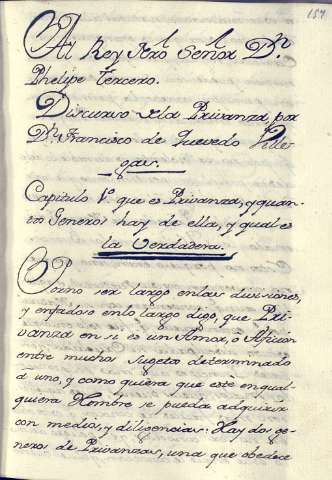 157
Al Rey Nro Señor Dn
Phelipe tercero.
Discurso de la Privanza, por
Dn Francisco de Quevedo Ville
gas.
Capitulo 1º que es Privanza, y quan-
tos Generos hay de ella, y qual es
la Verdadera.
Por no ser largo en las divisiones,
y enfadoso en lo largo digo, que Pri-
vanza en si es un Amor, o Aficion
entre muchos Sugetos determinado
a uno, y como quiera que este en qual-
quiera Hombre se pueda adquirir
con medios, y diligencias. Hay dos ge-
neros de Privanzas, una que obedece